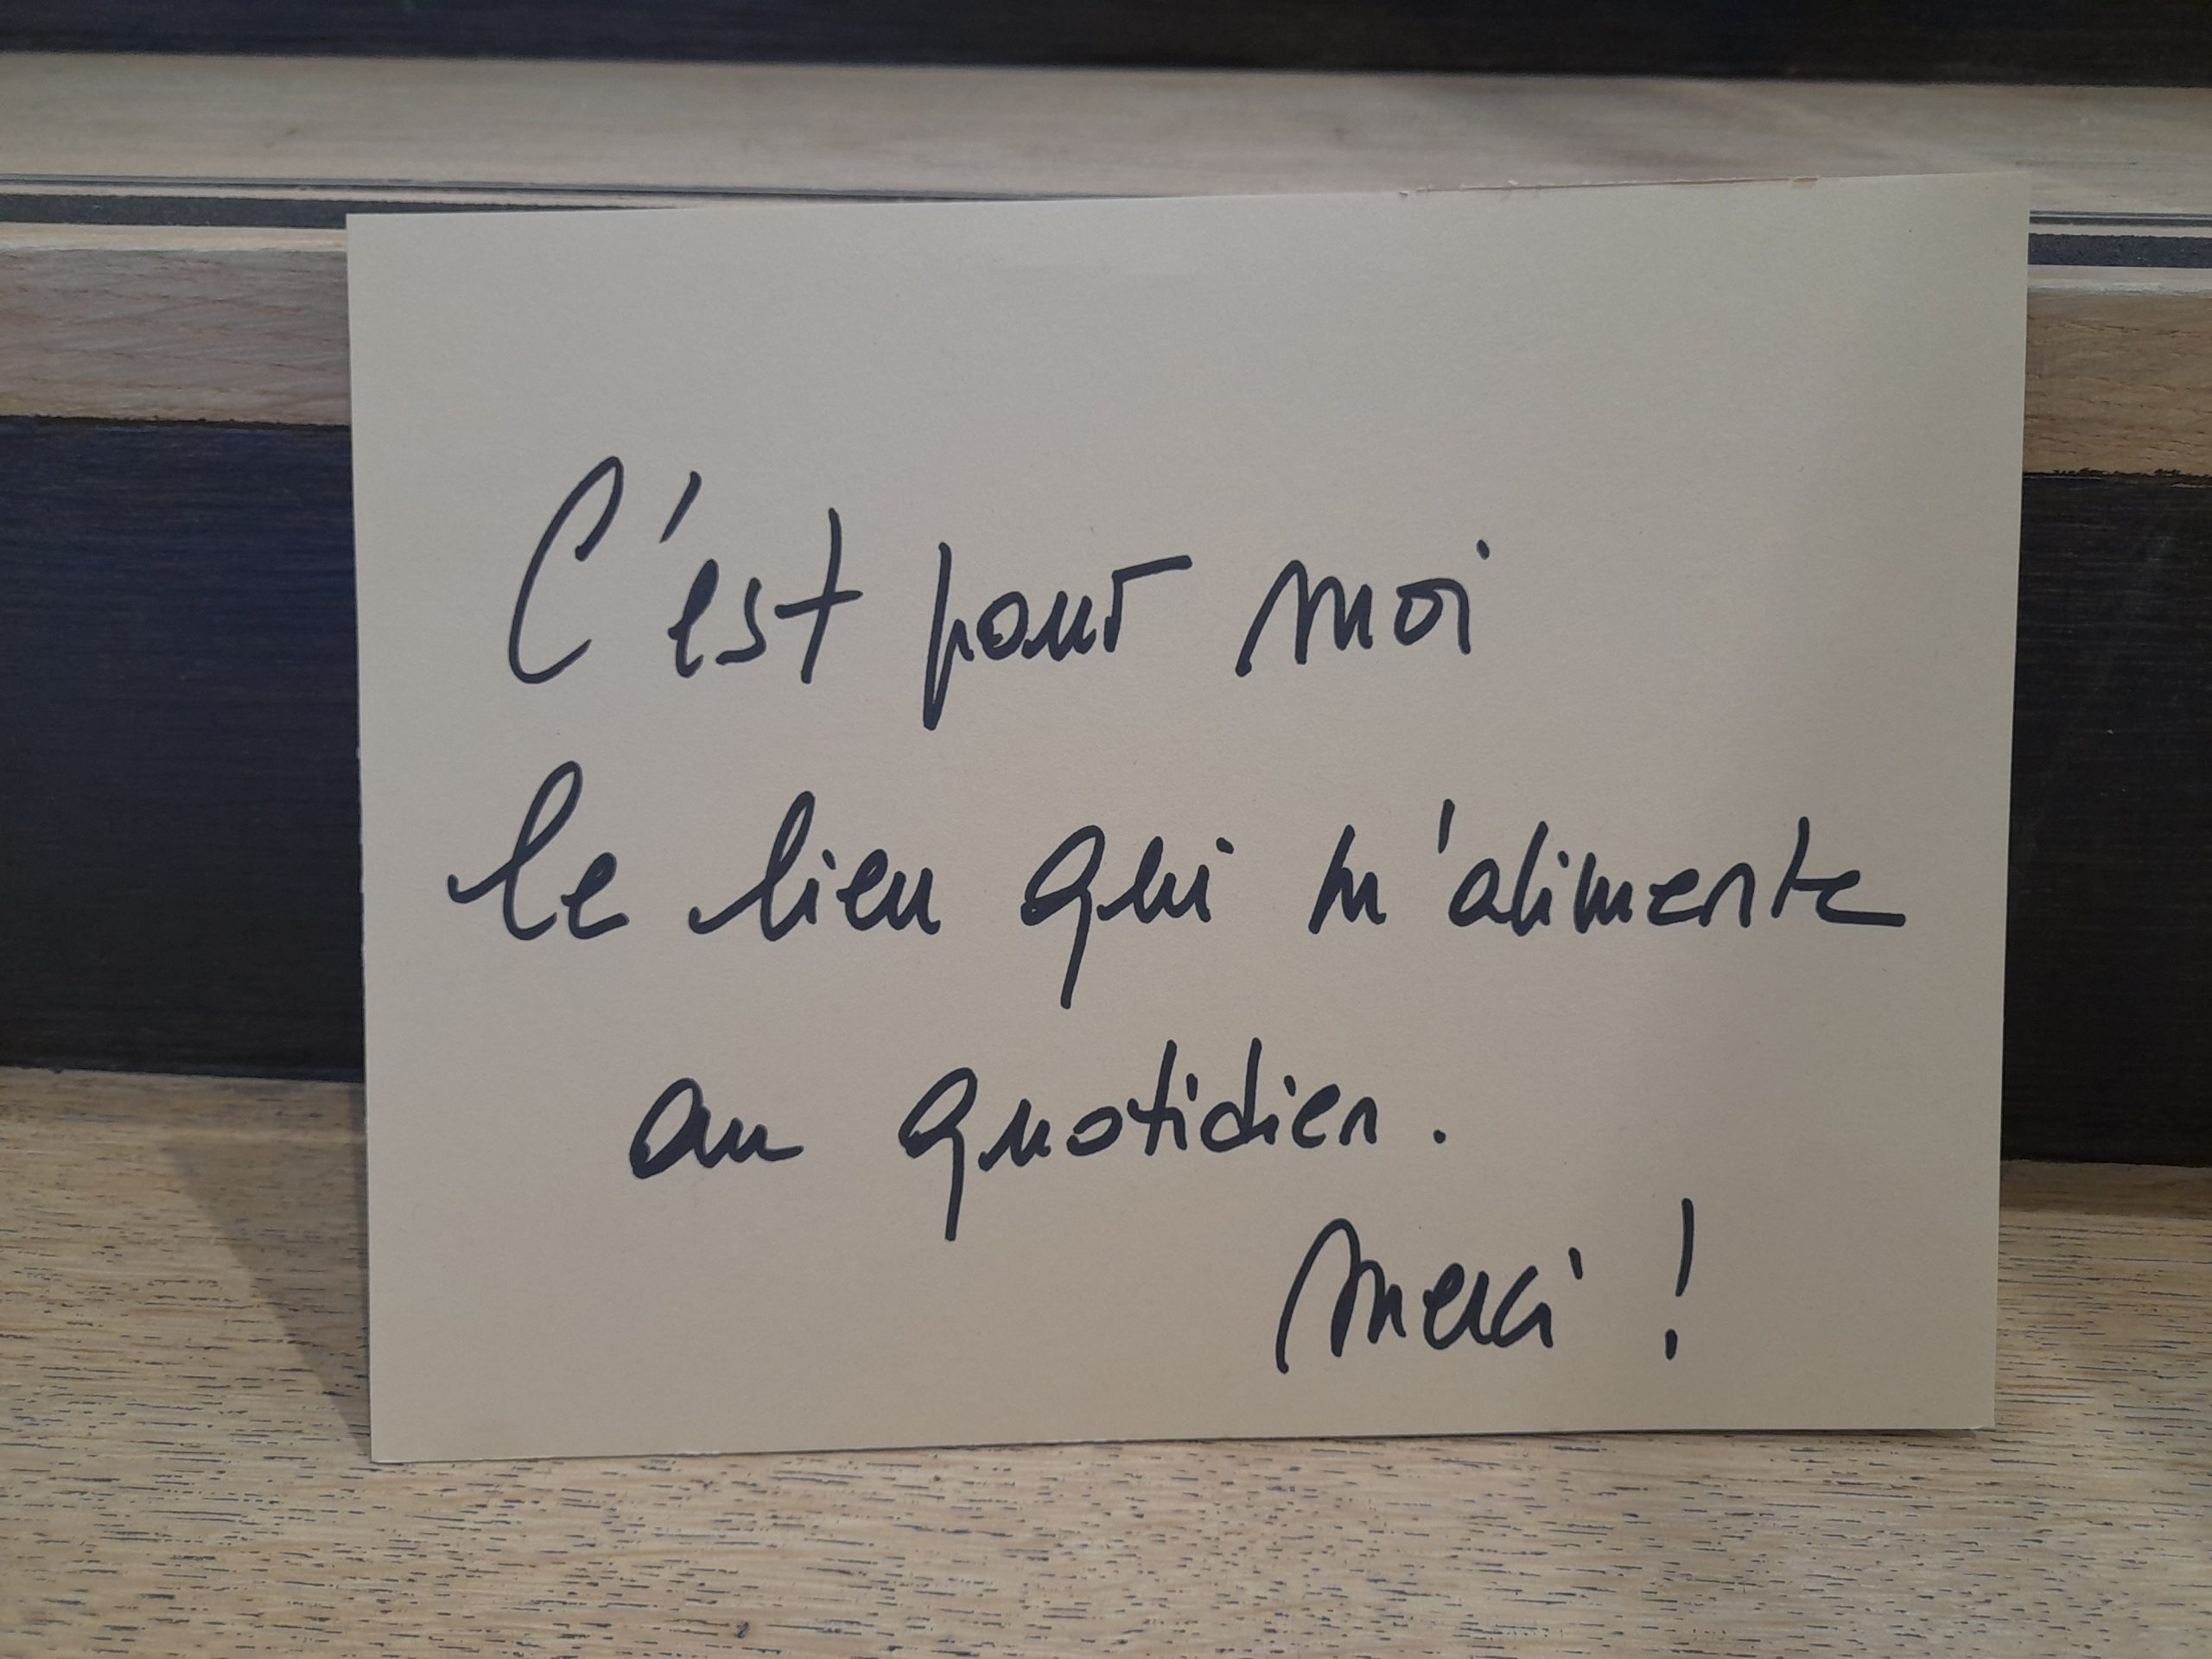 C'est pour moi
le lien qui m'alimente
au quotidien.
Merci !